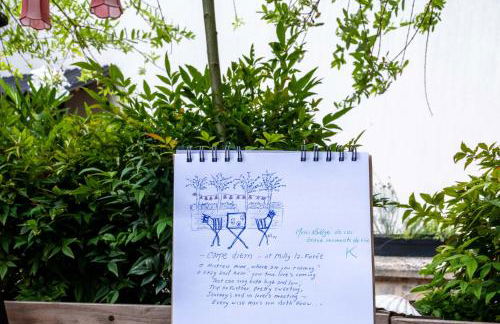 carpe diem - at Milly la Forêt
O mistress mine, where are you roaming?
O stay and hear: your true love's coming,
That can sing both high and low;
Trip no further, pretty sweeting,
Journeys end in lovers meeting -
Every wise man's son doth know...
K